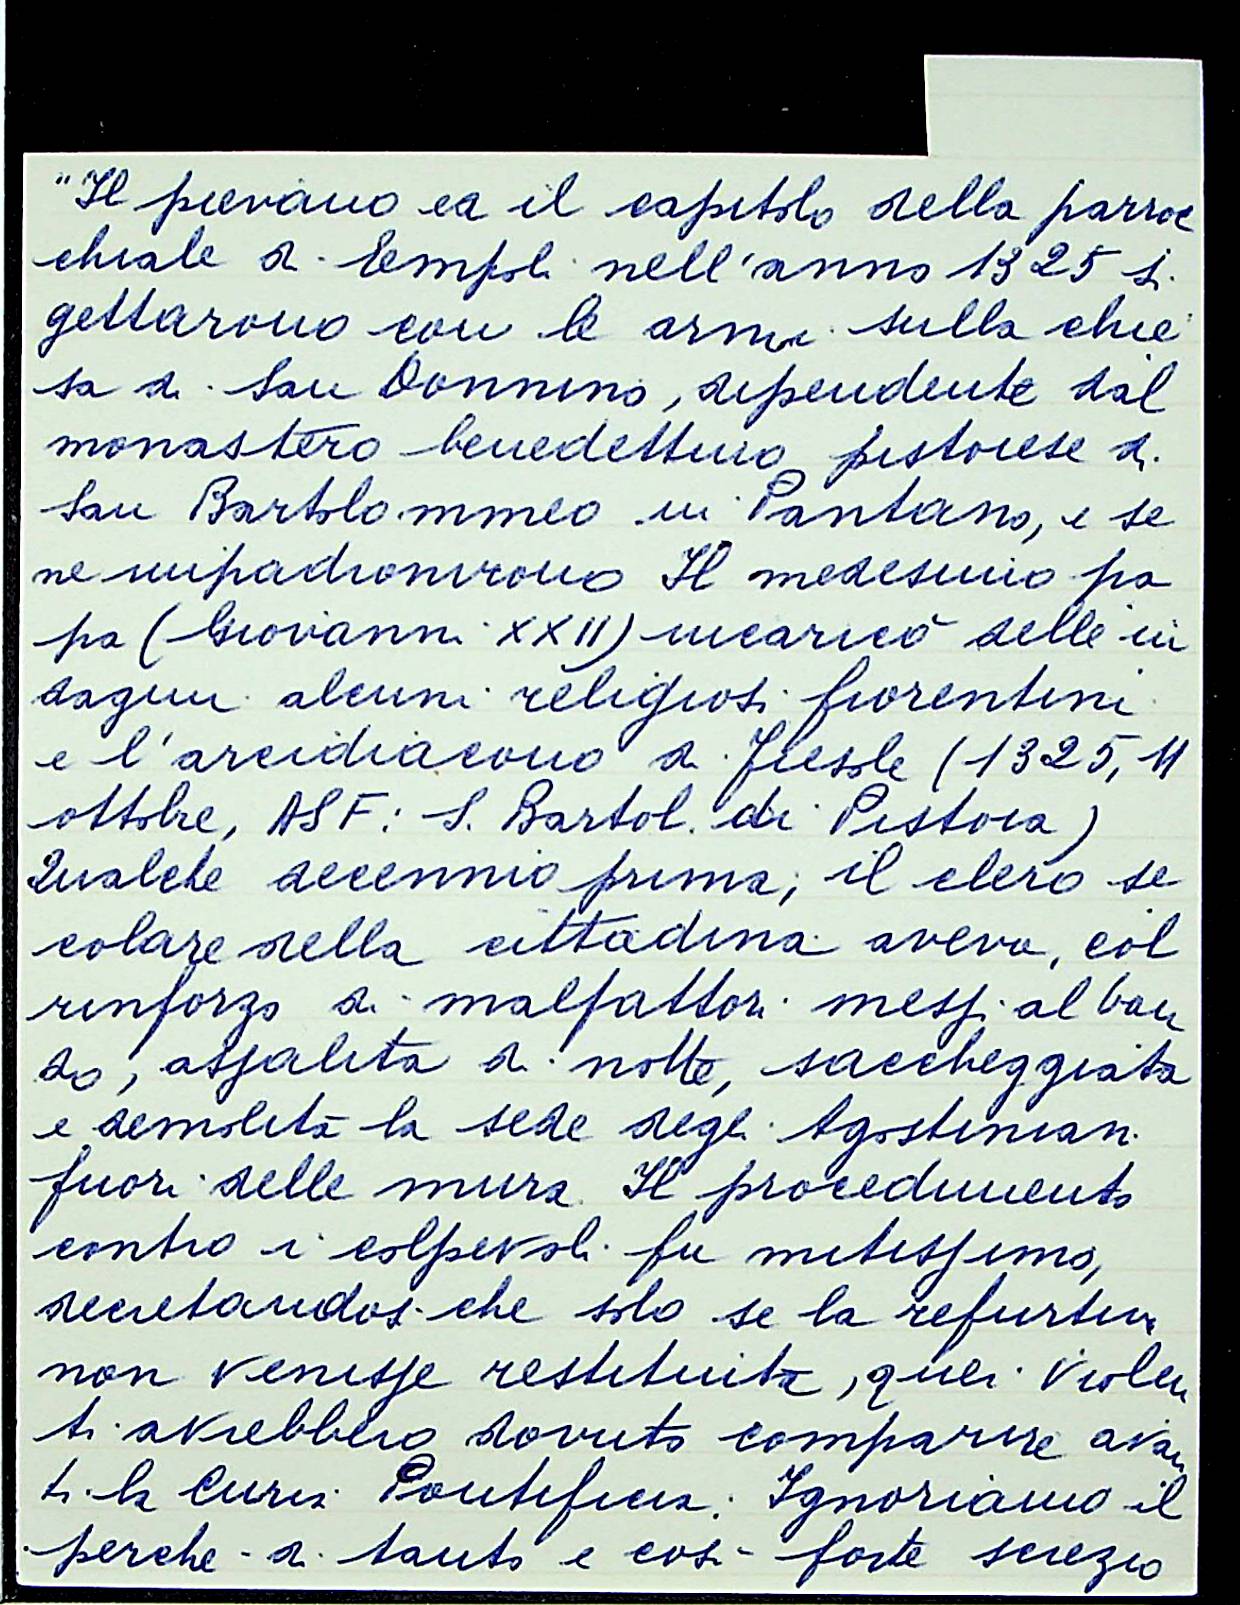 "Il pievano ed il capitolo della parroc
chiale di Empoli nell'anno 1325 si
gettarono con le armi sulla chie
sa di San Donnino, dipendente dal
monastero benedettino pistoiese di
San Bartolommeo in Pantano, e se
ne impadronirono Il medesimo pa
pa (Giovanni XXII) incaricò delle in
dagini alcuni religiosi fiorentini
e l'arcidiacono di Fiesole (1325, 11
ottobre, ASF: S. Bartol. di Pistoia)
Qualche decennio prima, il clero se
colare della cittadina aveva, col
rinforzo di malfattori messi al ban
do, assalita di notte, saccheggiata
e demolita la sede degli Agostiniani
fuori delle mura Il procedimento
contro i colpevoli fu mitissimo,
decretandosi che solo se la refurtiva
non venisse restituita, quei violen
ti avrebbero dovuto comparire avan
ti la Curia Pontificia. Ignoriamo il
perche di tanto e così forte screzio